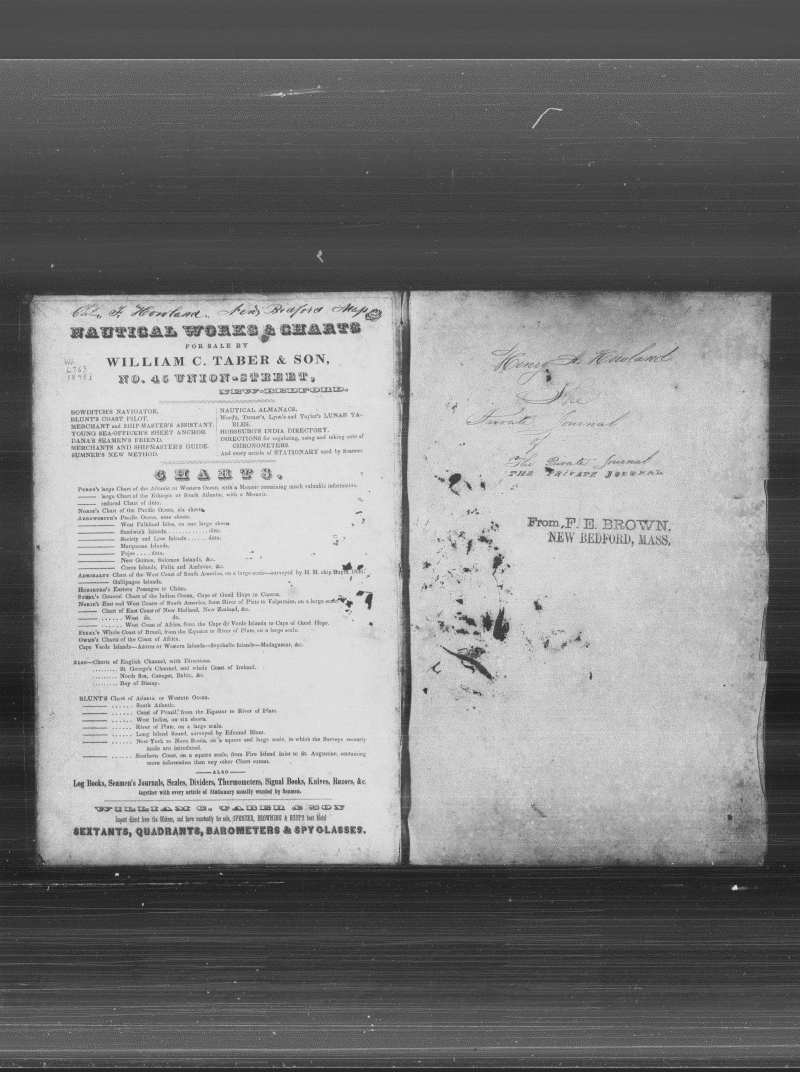 F. Howland. New Bedford Mass
NAUTICAL WORKS & CHARTS
FOR SALE BY
WILLIAM C. TABER & SON,
NO. 45 UNION-STREET,
NEW-BEDFORD.
BOWDITCH'S NAVIGATOR,
BLUNT'S COAST PILOT,
MERCHANT and SHIP-MASTER'S ASSISTANT,
YOUNG SEA-OFFICER'S SHEET ANCHOR,
DANA'S SEAMEN'S FRIEND,
MERCHANTS AND SHIPMASTER'S GUIDE,
SUMNER'S NEW METHOD.
NAUTICAL ALMANACS,
Wood's, Turner's, Lyon's and Taylor's LUNAR TA-
BLES.
HORSBURG'S INDIA DIRECTORY.
DIRECTIONS for regulating, using and taking care of
CHRONOMETERS.
And every article of STATIONARY used by Seamen.
CHARTS.
PURDY'S large Chart of the Atlantic or Western Ocean, with a Memoir containing much valuable information.
——— large Chart of the Ethiopic or South Atlantic, with a Memoir.
——— reduced Chart of ditto.
NORIE'S Chart of the Pacific Ocean, six sheets.
ARROWSMITH'S Pacific Ocean, nine sheets.
——— West Falkland Isles, on one large sheet.
——— Sandwich Islands, ............ ditto.
——— Society and Low Islands ...... ditto.
——— Marquesas Islands.
——— Fejee .... ditto.
——— New Guinea, Solomon Islands, &c.
——— Cocos Islands, Felix and Ambrose, &c.
ADMIRALTY Chart of the West Coast of South America, on a large scale—surveyed by H. M. ship
——— Gallipagos Islands.
HORSBURG'S Eastern Passages to China.
STEEL'S General Chart of the Indian Ocean, Cape of Good Hope to Canton.
NORIE'S East and West Coasts of South America, from River of Plate to Valparaiso, on a large scale.
——— Chart of East Coast of New Holland, New Zealand, &c.
——— ...... West do. do.
——— ...... West Coast of Africa, from the Cape de Verde Islands to Cape of Good Hope.
STEEL'S Whole Coast of Brazil, from the Equator to River of Plate, on a large scale.
OWEN'S Charts of the Coast of Africa.
Cape Verde Islands—Azores or Western Islands—Seychelle Islands—Madagascar, &c.
ALSO—Charts of English Channel, with Directions.
......... St. George's Channel, and whole Coast of Ireland.
......... North Sea, Categat, Baltic, &c.
......... Bay of Biscay.
BLUNT'S Chart of Atlantic or Western Ocean.
——— ...... South Atlantic.
——— ...... Coast of Brazil, from the Equator to River of Plate.
——— ...... West Indies, on six sheets.
——— ...... River of Plate, on a large scale.
——— ...... Long Island Sound, surveyed by Edmund Blunt.
——— ...... New-York to Nova Scotia, on a square and large scale, in which the Surveys recently
made are introduced.
——— ...... Southern Coast, on a square scale, from Fire Island Inlet to St. Augustine, containing
more information than any other Chart extant.
—ALSO—
Log Books, Seamen's Journals, Scales, Dividers, Thermometers, Signal Books, Knives, Razors, &c.
together with every article of Stationary usually wanted by Seamen.
WILLIAM C. TABER & SON
Import direct from the Makers, and have constantly for sale, SPENCER, BROWNING & RUST'S best Metal
SEXTANTS, QUADRANTS, BAROMETERS & SPY GLASSES.
Henry A. Howland
Private Journal
of
The Private Journal
THE PRIVATE JOURNAL
From F. E. BROWN,
NEW BEDFORD, MASS.